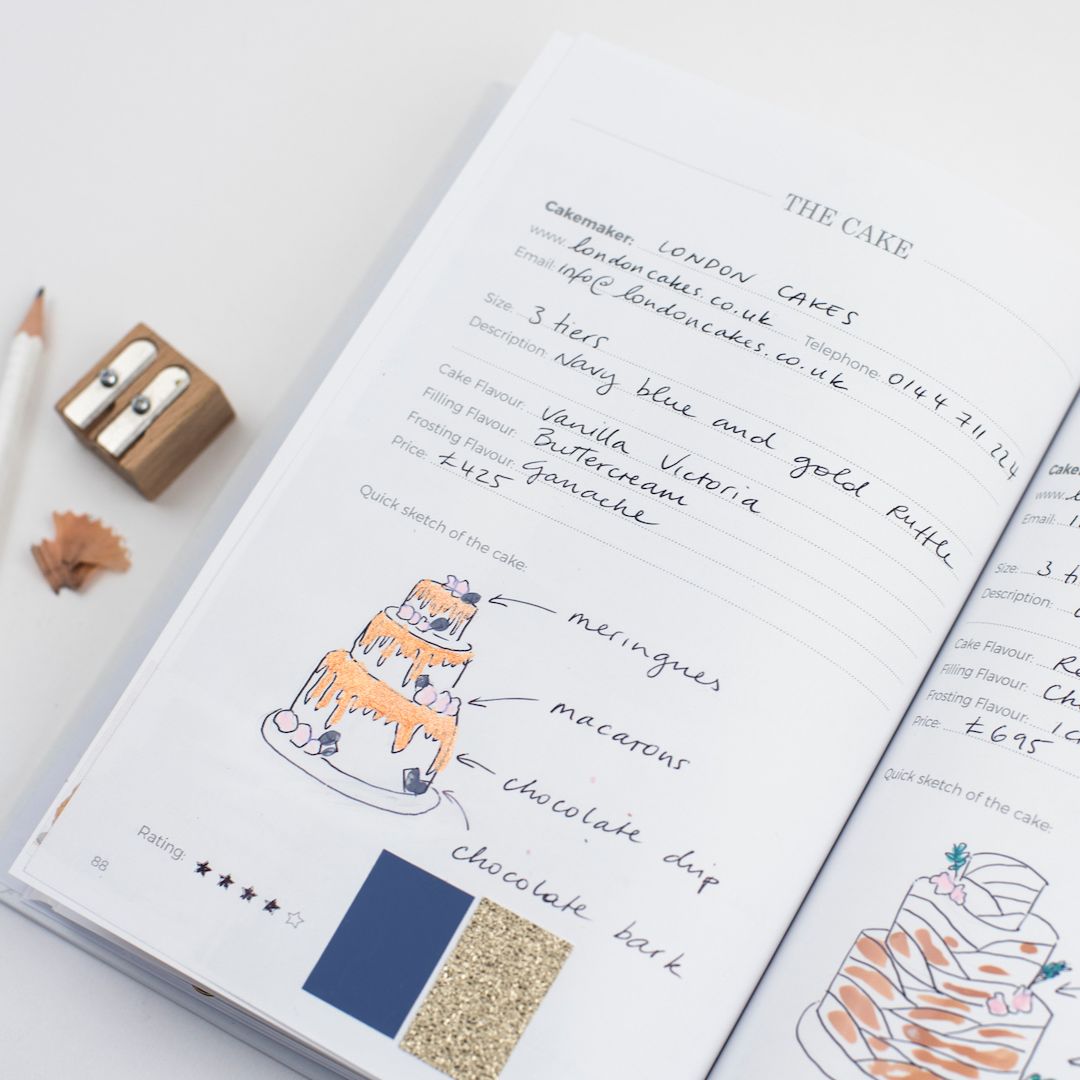 THE CAKE
Cakemaker: LONDON CAKES
www. londoncakes.co.uk Telephone: 01444 711 224
Email: info@londoncakes.co.uk
Size: 3 tiers
Description: Navy blue and gold Ruffle
Cake Flavour: Vanilla Victoria
Filling Flavour: Buttercream
Frosting Flavour: Ganache
Price: £425
Quick sketch of the cake:
meringues
macarons
chocolate drip
chocolate bark
Rating:
88
www.
Email:
Size: 3
Description:
Cake Flavour:
Filling Flavour:
Frosting Flavour:
Price: £695
Quick sketch of the cake: